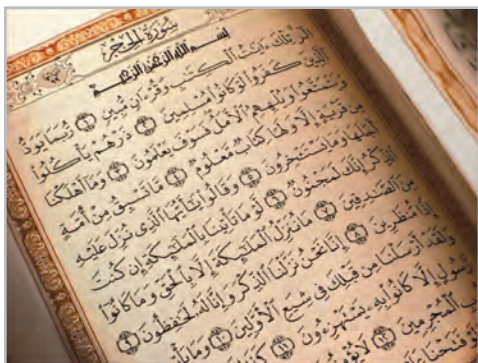 سُورَةُ الْحِجْرِ
بِسْمِ اللَّهِ الرَّحْمَٰنِ الرَّحِيمِ
الٓر ۚ تِلْكَ ءَايَٰتُ الْكِتَٰبِ وَقُرْءَانٍ مُّبِينٍ ﴿١﴾ رُّبَمَا يَوَدُّ
الَّذِينَ كَفَرُوا لَوْ كَانُوا مُسْلِمِينَ ﴿٢﴾ ذَرْهُمْ يَأْكُلُوا
وَيَتَمَتَّعُوا وَيُلْهِهِمُ الْأَمَلُ فَسَوْفَ يَعْلَمُونَ ﴿٣﴾ وَمَا أَهْلَكْنَا
مِن قَرْيَةٍ إِلَّا وَلَهَا كِتَابٌ مَّعْلُومٌ ﴿٤﴾ مَّا تَسْبِقُ مِنْ أُمَّةٍ
أَجَلَهَا وَمَا يَسْتَـْٔخِرُونَ ﴿٥﴾ وَقَالُوا يَٰأَيُّهَا الَّذِي نُزِّلَ عَلَيْهِ
الذِّكْرُ إِنَّكَ لَمَجْنُونٌ ﴿٦﴾ لَّوْ مَا تَأْتِينَا بِالْمَلَٰئِكَةِ إِن كُنتَ
مِنَ الصَّٰدِقِينَ ﴿٧﴾ مَا نُنَزِّلُ الْمَلَٰئِكَةَ إِلَّا بِالْحَقِّ وَمَا كَانُوا
إِذًا مُّنظَرِينَ ﴿٨﴾ إِنَّا نَحْنُ نَزَّلْنَا الذِّكْرَ وَإِنَّا لَهُ لَحَٰفِظُونَ ﴿٩﴾
وَلَقَدْ أَرْسَلْنَا مِن قَبْلِكَ فِي شِيَعِ الْأَوَّلِينَ ﴿١٠﴾ وَمَا
رَّسُولٍ إِلَّا كَانُوا بِهِ يَسْتَهْزِءُونَ ﴿١١﴾
الْمُجْرِمِينَ ﴿١٢﴾ لَا